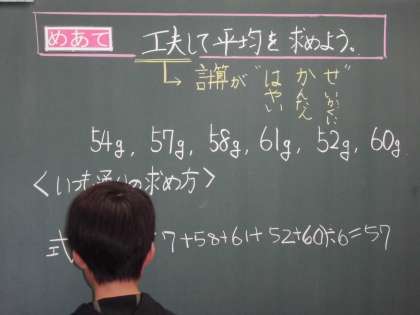 めあて 工夫して平均を求めよう。
→ 計算が"はやい かんたん せいかくに"
54g, 57g, 58g, 61g, 52g, 60g
<いつも通りの求め方>
式 7+58+61+52+60)÷6=57